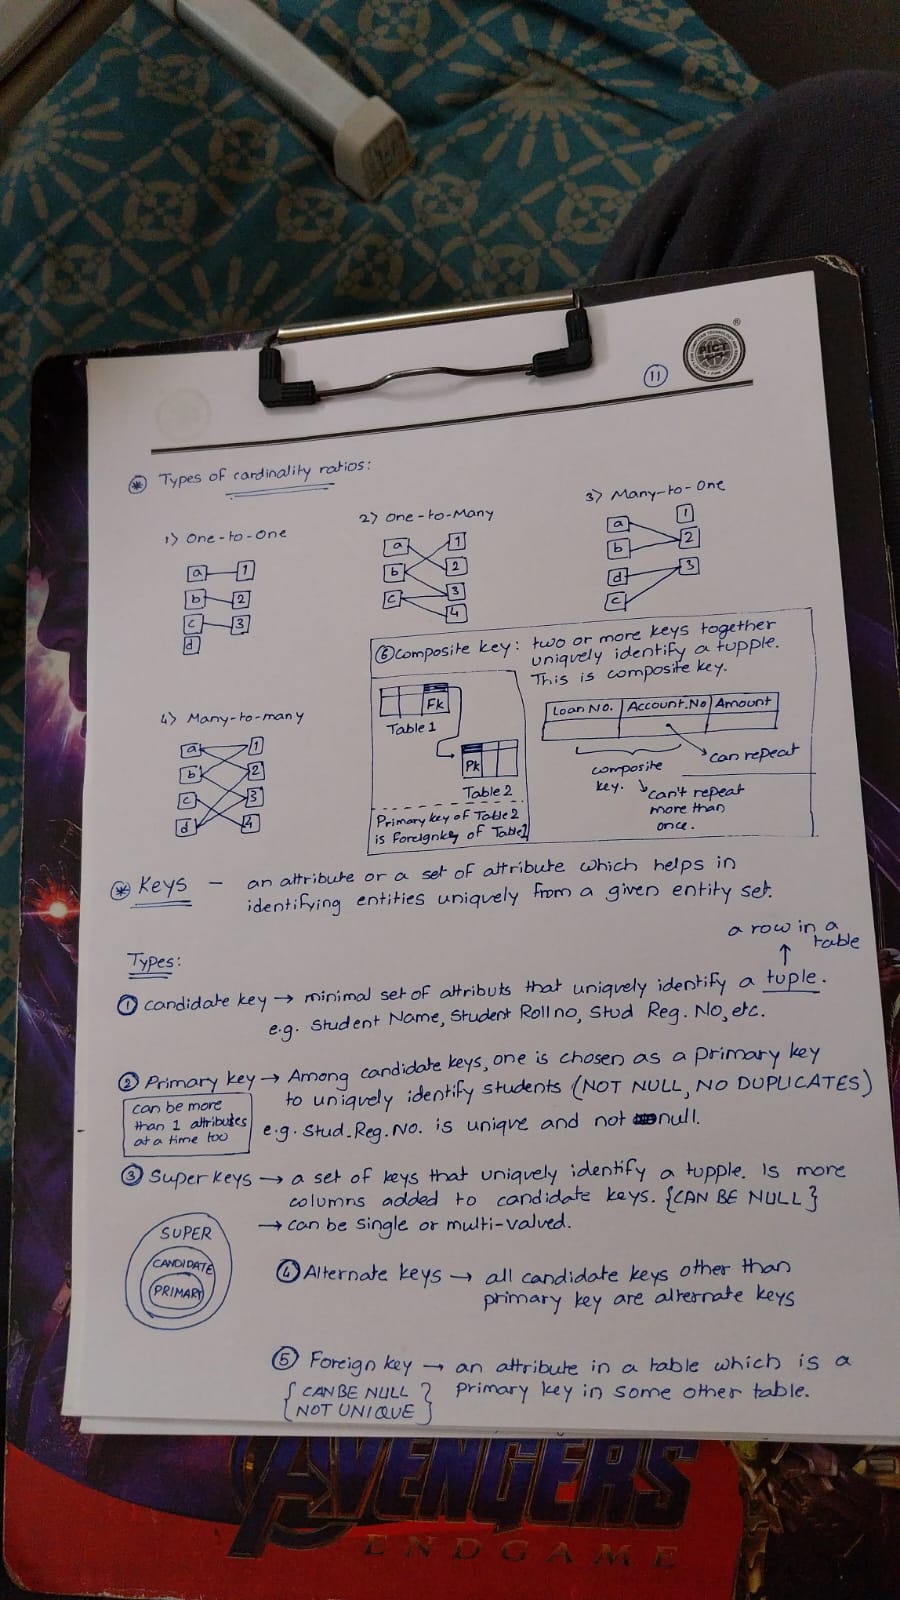 11
PICT
®
* Types of cardinality ratios:
1) One-to-One
a 1
b 2
c 3
d
2) One-to-Many
a 1
b 2
c 3
4
3) Many-to-One
a 1
b 2
d 3
c
4) Many-to-many
a 1
b 2
c 3
d 4
⑥ Composite key: two or more keys together
uniquely identify a tupple.
This is composite key.
FK
Table 1
PK
Table 2
Primary key of Table 2
is Foreignkey of Table1
Loan No. Account.No Amount
composite
key.
can repeat
can't repeat
more than
once.
* Keys - an attribute or a set of attribute which helps in
identifying entities uniquely from a given entity set.
a row in a
table
↑
Types:
① Candidate key → minimal set of attributs that uniquely identify a tuple.
e.g. Student Name, Student Rollno, Stud Reg. No, etc.
② Primary key → Among candidate keys, one is chosen as a primary key
to uniquely identify students (NOT NULL, NO DUPLICATES)
e.g. Stud.Reg.No. is unique and not null.
can be more
than 1 attributes
at a time too
③ Super keys → a set of keys that uniquely identify a tupple. Is more
columns added to candidate keys. {CAN BE NULL}
→ can be single or multi-valued.
SUPER
CANDIDATE
PRIMARY
④ Alternate keys → all candidate keys other than
primary key are alternate keys
⑤ Foreign key → an attribute in a table which is a
primary key in some other table.
{CAN BE NULL
NOT UNIQUE}
AVENGERS
ENDGAME